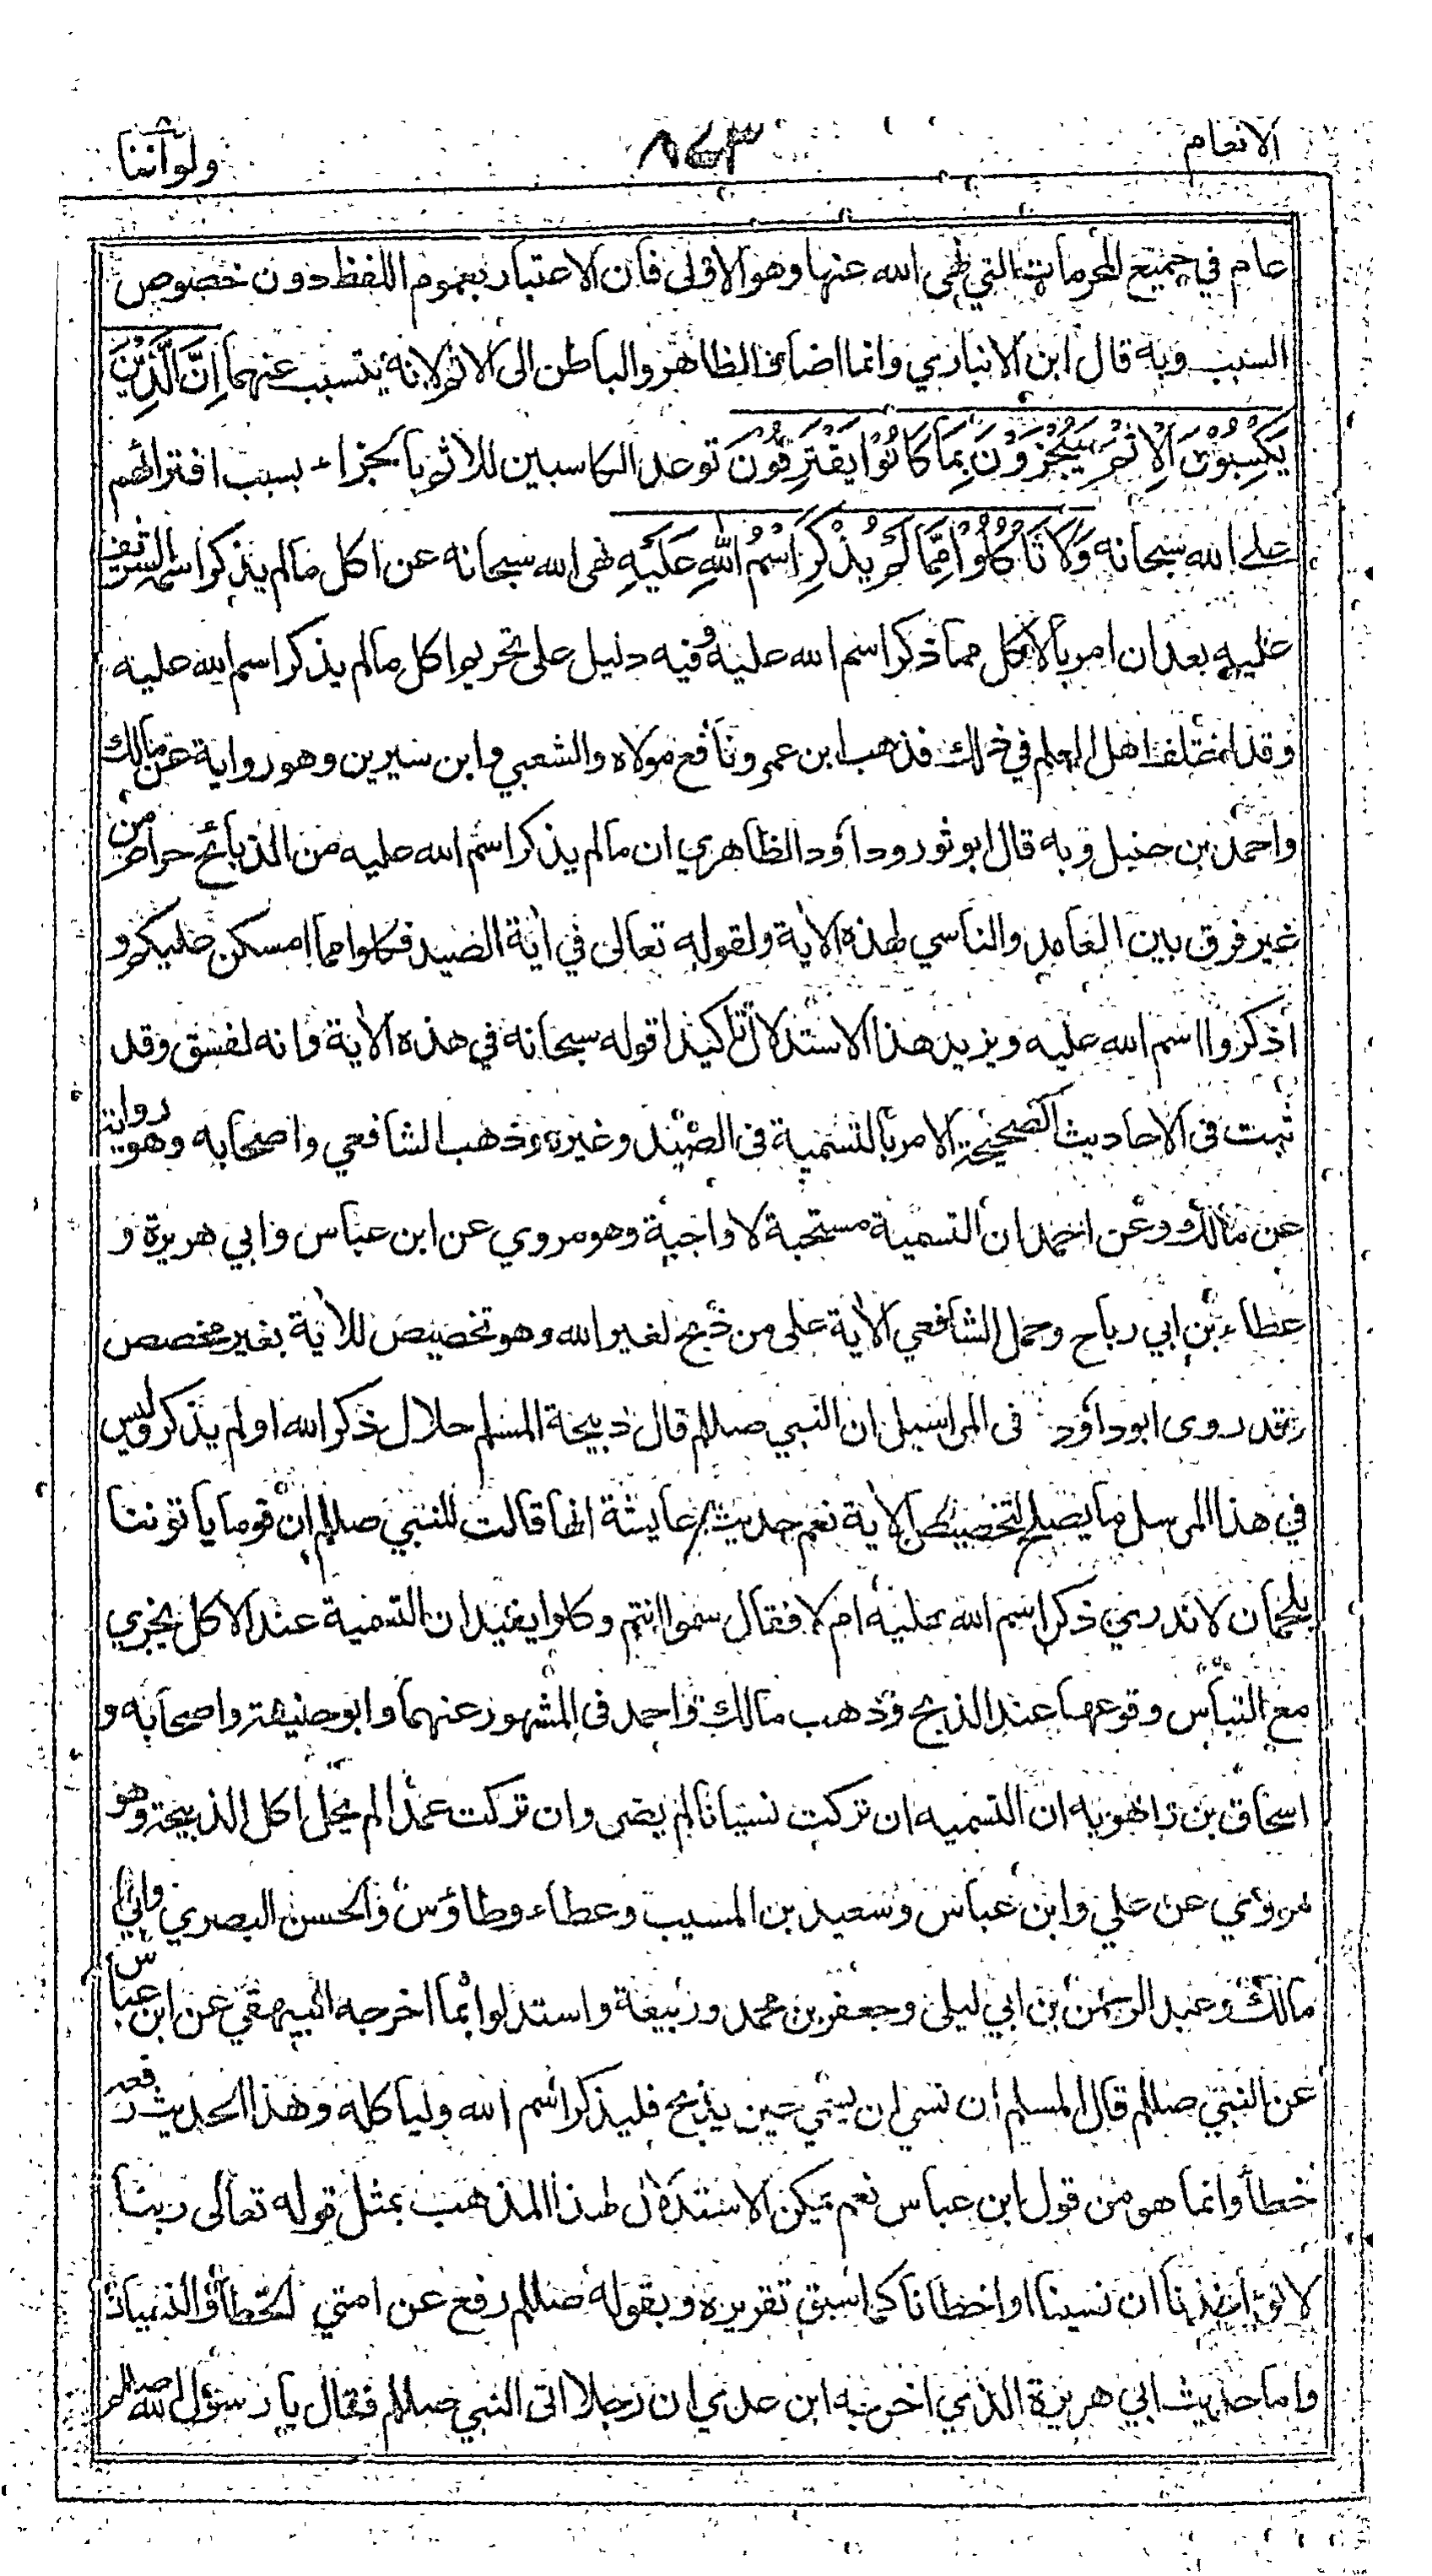 الانعام ٨٤٣ ولواننا
عام في جميع المحرمات التي نهى الله عنها وهو الاولى فان الاعتبار بعموم اللفظ دون خصوص
السبب وبه قال ابن الانباري وانما اضاف الظاهر والباطن الى الاثم لانه يتسبب عنهما اِنَّ الَّذِيْنَ
يَكْسِبُوْنَ الْاِثْمَ سَيُجْزَوْنَ بِمَا كَانُوْا يَقْتَرِفُوْنَ توعد الكاسبين للاثم بالجزاء بسبب افترائهم
على الله سبحانه وَلَا تَاْكُلُوْا مِمَّا لَمْ يُذْكَرِ اسْمُ اللّٰهِ عَلَيْهِ نهى الله سبحانه عن اكل مالم يذكر اسمه الشريف
عليه بعد ان امر بالاكل مما ذكر اسم الله عليه وفيه دليل على تحريم اكل مالم يذكر اسم الله عليه
وقد اختلف اهل العلم في ذلك فذهب ابن عمر ونافع مولاه والشعبي وابن سيرين وهو رواية عن مالك
واحمد بن حنبل وبه قال ابو ثور وداؤد الظاهري ان مالم يذكر اسم الله عليه من الذبائح حرام من
غير فرق بين العامد والناسي لهذه الاية ولقوله تعالى في اية الصيد فكلوا مما امسكن عليكم و
اذكروا اسم الله عليه ويزيد هذا الاستدلال تاكيدا قوله سبحانه في هذه الاية وانه لفسق وقد
ثبت في الاحاديث الصحيحة الامر بالتسمية في الصيد وغيره وذهب الشافعي واصحابه وهو رواية
عن مالك وعن احمد ان التسمية مستحبة لا واجبة وهو مروي عن ابن عباس وابي هريرة و
عطاء بن ابي رباح وحمل الشافعي الاية على من ذبح لغير الله وهو تخصيص للاية بغير مخصص
وقد روى ابو داؤد في المراسيل ان النبي صللم قال ذبيحة المسلم حلال ذكر الله او لم يذكر وليس
في هذا المرسل ما يصلح لتخصيص الاية نعم حديث عايشة انها قالت للنبي صللم ان قوما ياتوننا
بلحمان لا ندري ذكر اسم الله عليه ام لا فقال سموا انتم وكلوا يفيد ان التسمية عند الاكل يجزي
مع التباس وقوعها عند الذبح وذهب مالك واحمد في المشهور عنهما وابو حنيفة واصحابه و
اسحاق بن راهويه ان التسميه ان تركت نسيانا لم يضر وان تركت عمدا لم يحل اكل الذبيحة وهو
مروي عن علي وابن عباس وسعيد بن المسيب وعطاء وطاؤس والحسن البصري وابي
مالك وعبد الرحمن بن ابي ليلى وجعفر بن محمد وربيعة واستدلوا بما اخرجه البيهقي عن ابن عباس
عن النبي صللم قال المسلم ان نسي ان يسمي حين يذبح فليذكر اسم الله ولياكله وهذا الحديث رفعه
خطأ وانما هو من قول ابن عباس نعم يمكن الاستدلال لهذا المذهب بمثل قوله تعالى ربنا
لا تؤاخذنا ان نسينا او اخطانا كما سبق تقريره وبقوله صللم رفع عن امتي الخطأ والنسيان
واما حديث ابي هريرة الذي اخرجه ابن عدي ان رجلا اتى النبي صللم فقال يا رسول الله صللم